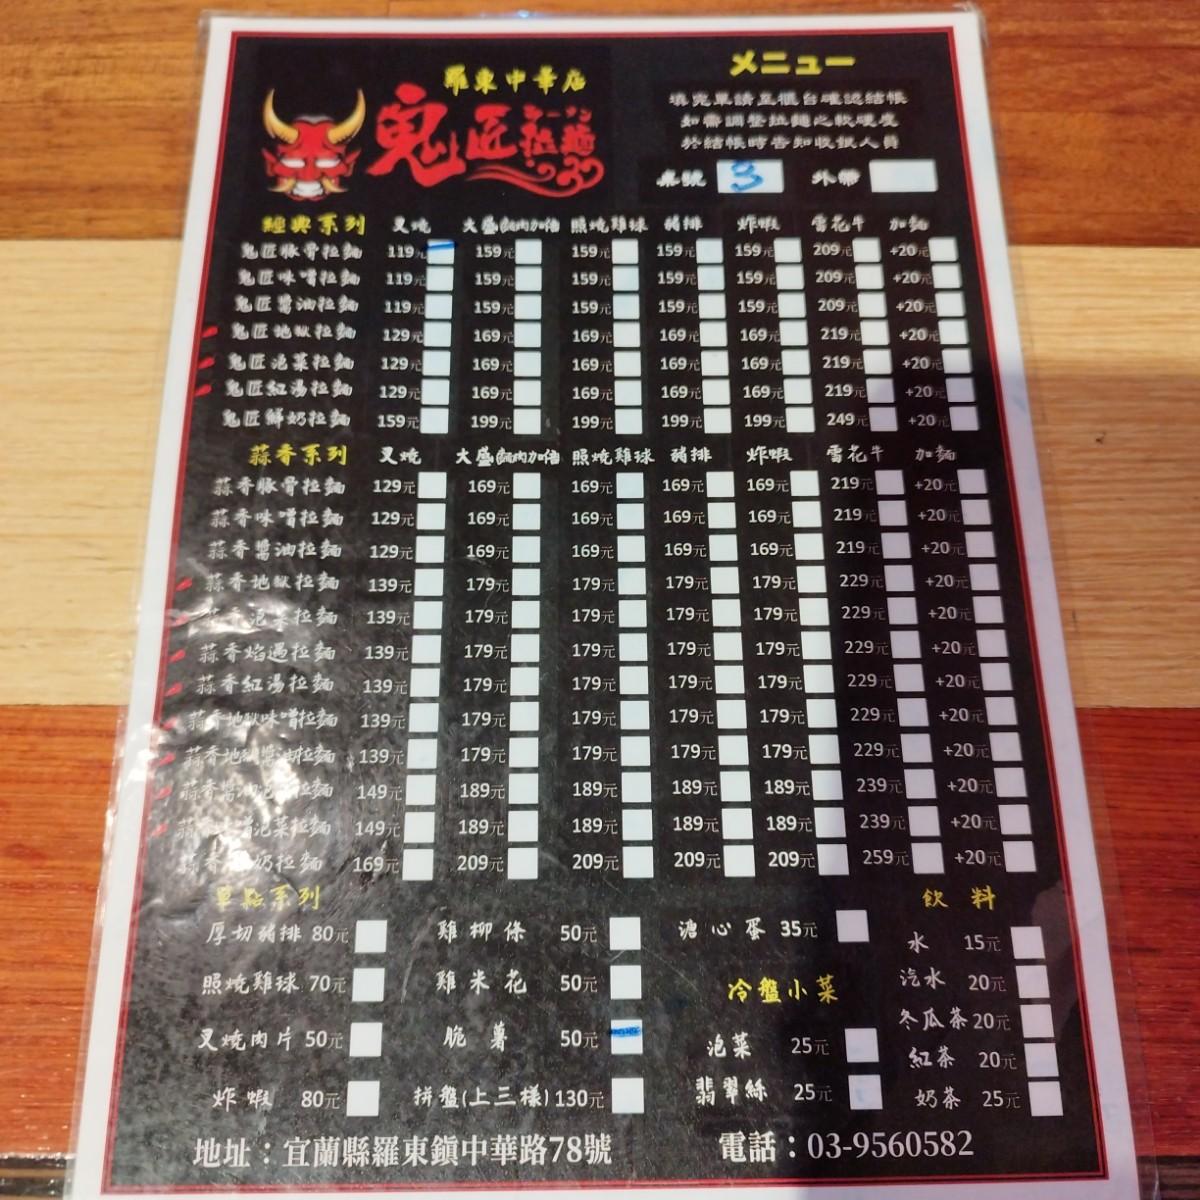 羅東中華店
鬼匠拉麵
ラーメン
メニュー
填完單請至櫃台確認結帳
如需調整拉麵之軟硬度
於結帳時告知收銀人員
桌號 3 外帶
經典系列 叉燒 大盛(麵肉加倍) 照燒雞球 豬排 炸蝦 雪花牛 加麵
鬼匠豚骨拉麵 119元 159元 159元 159元 159元 209元 +20元
鬼匠味噌拉麵 119元 159元 159元 159元 159元 209元 +20元
鬼匠醬油拉麵 119元 159元 159元 159元 159元 209元 +20元
鬼匠地獄拉麵 129元 169元 169元 169元 169元 219元 +20元
鬼匠泡菜拉麵 129元 169元 169元 169元 169元 219元 +20元
鬼匠紅湯拉麵 129元 169元 169元 169元 169元 219元 +20元
鬼匠鮮奶拉麵 159元 199元 199元 199元 199元 249元 +20元
蒜香系列 叉燒 大盛(麵肉加倍) 照燒雞球 豬排 炸蝦 雪花牛 加麵
蒜香豚骨拉麵 129元 169元 169元 169元 169元 219元 +20元
蒜香味噌拉麵 129元 169元 169元 169元 169元 219元 +20元
蒜香醬油拉麵 129元 169元 169元 169元 169元 219元 +20元
蒜香地獄拉麵 139元 179元 179元 179元 179元 229元 +20元
蒜香泡菜拉麵 139元 179元 179元 179元 179元 229元 +20元
蒜香焰遇拉麵 139元 179元 179元 179元 179元 229元 +20元
蒜香紅湯拉麵 139元 179元 179元 179元 179元 229元 +20元
蒜香地獄味噌拉麵 139元 179元 179元 179元 179元 229元 +20元
蒜香地獄醬油拉麵 139元 179元 179元 179元 179元 229元 +20元
蒜香醬油泡菜拉麵 149元 189元 189元 189元 189元 239元 +20元
蒜香味噌泡菜拉麵 149元 189元 189元 189元 189元 239元 +20元
蒜香鮮奶拉麵 169元 209元 209元 209元 209元 259元 +20元
單點系列
厚切豬排 80元
照燒雞球 70元
叉燒肉片 50元
炸蝦 80元
雞柳條 50元
雞米花 50元
脆薯 50元
拼盤(上三樣) 130元
溏心蛋 35元
冷盤小菜
泡菜 25元
翡翠絲 25元
飲料
水 15元
汽水 20元
冬瓜茶 20元
紅茶 20元
奶茶 25元
地址：宜蘭縣羅東鎮中華路78號 電話：03-9560582